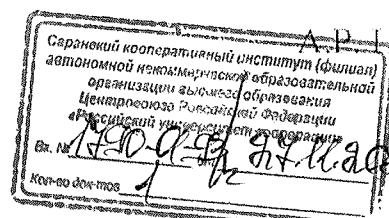 А Р
Саранский кооперативный институт (филиал)
автономной некоммерческой образовательной
организации высшего образования
Центросоюза Российской Федерации
«Российский университет кооперации»
Вх. №
Кол-во док-тов 1